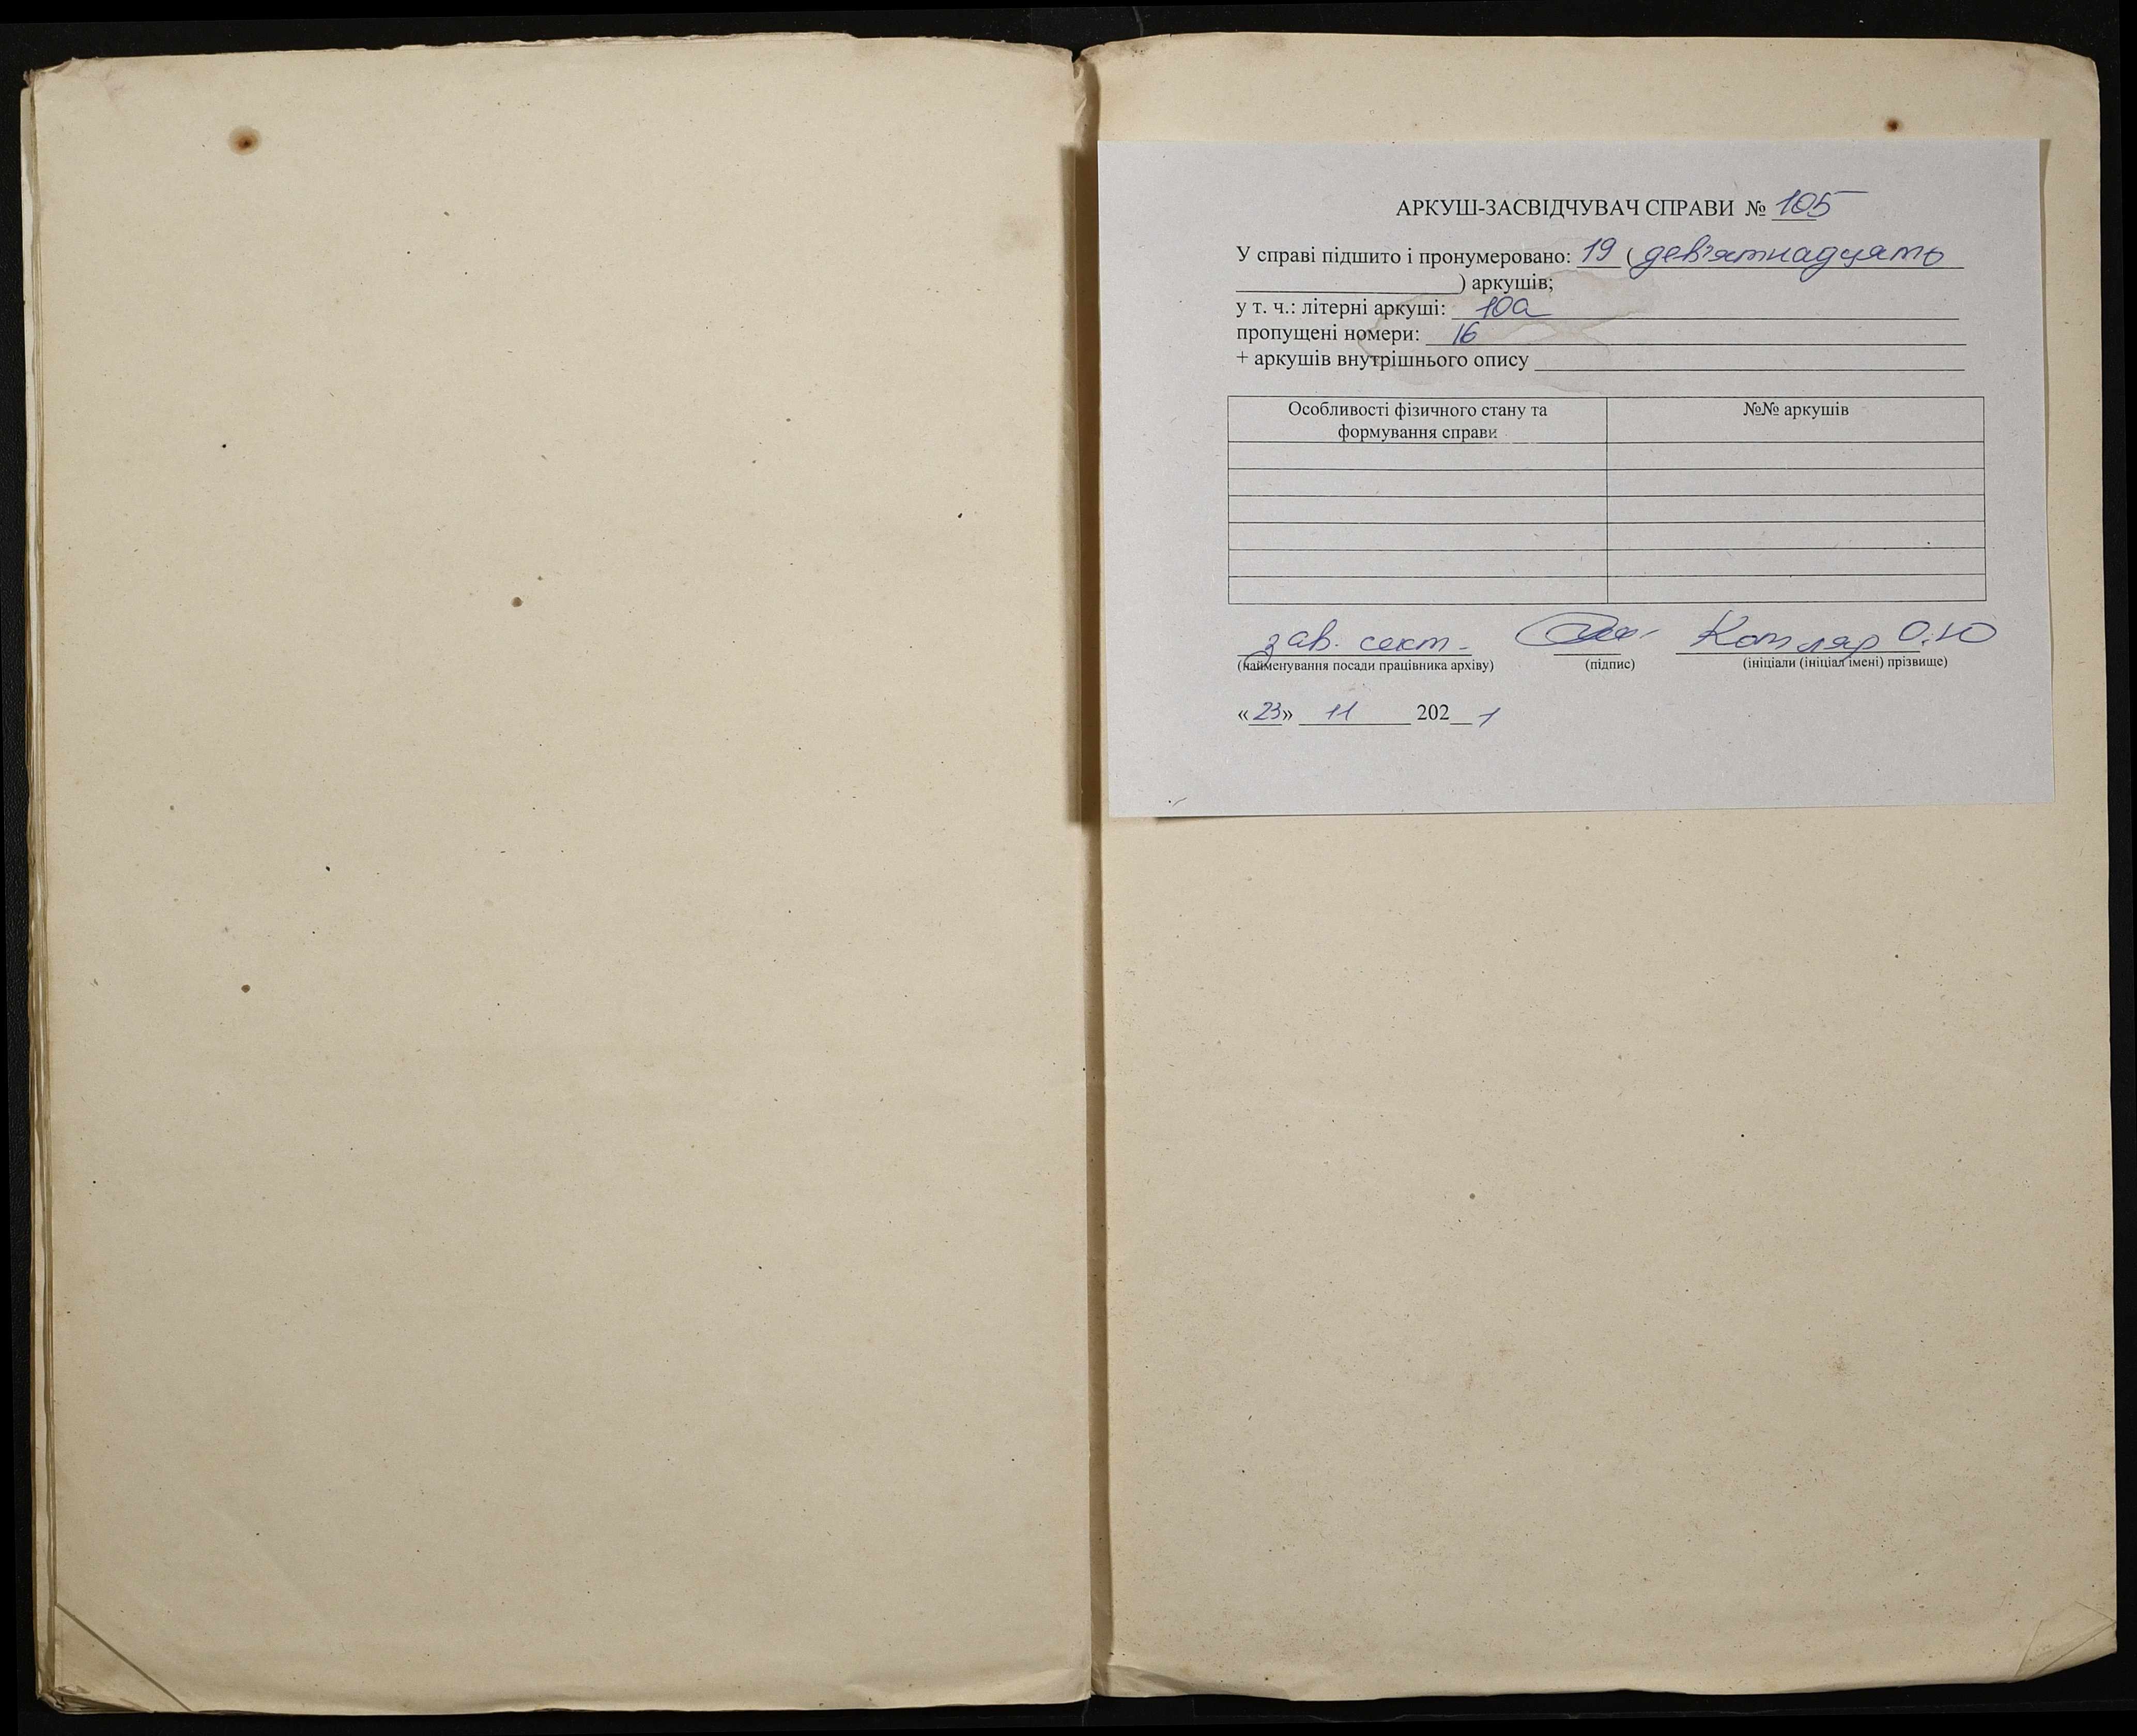 АРКУШ-ЗАСВІДЧУВАЧ СПРАВИ № 105
У справі підшито і пронумеровано: 19 ( дев'ятнадцять
) аркушів;
у т. ч.: літерні аркуші: 10а
пропущені номери: 16
+ аркушів внутрішнього опису
Особливості фізичного стану та формування справи
№№ аркушів
зав. сект. Котляр О.Ю
(найменування посади працівника архіву) (підпис) (ініціали (ініціал імені) прізвище)
«23» 11 2021